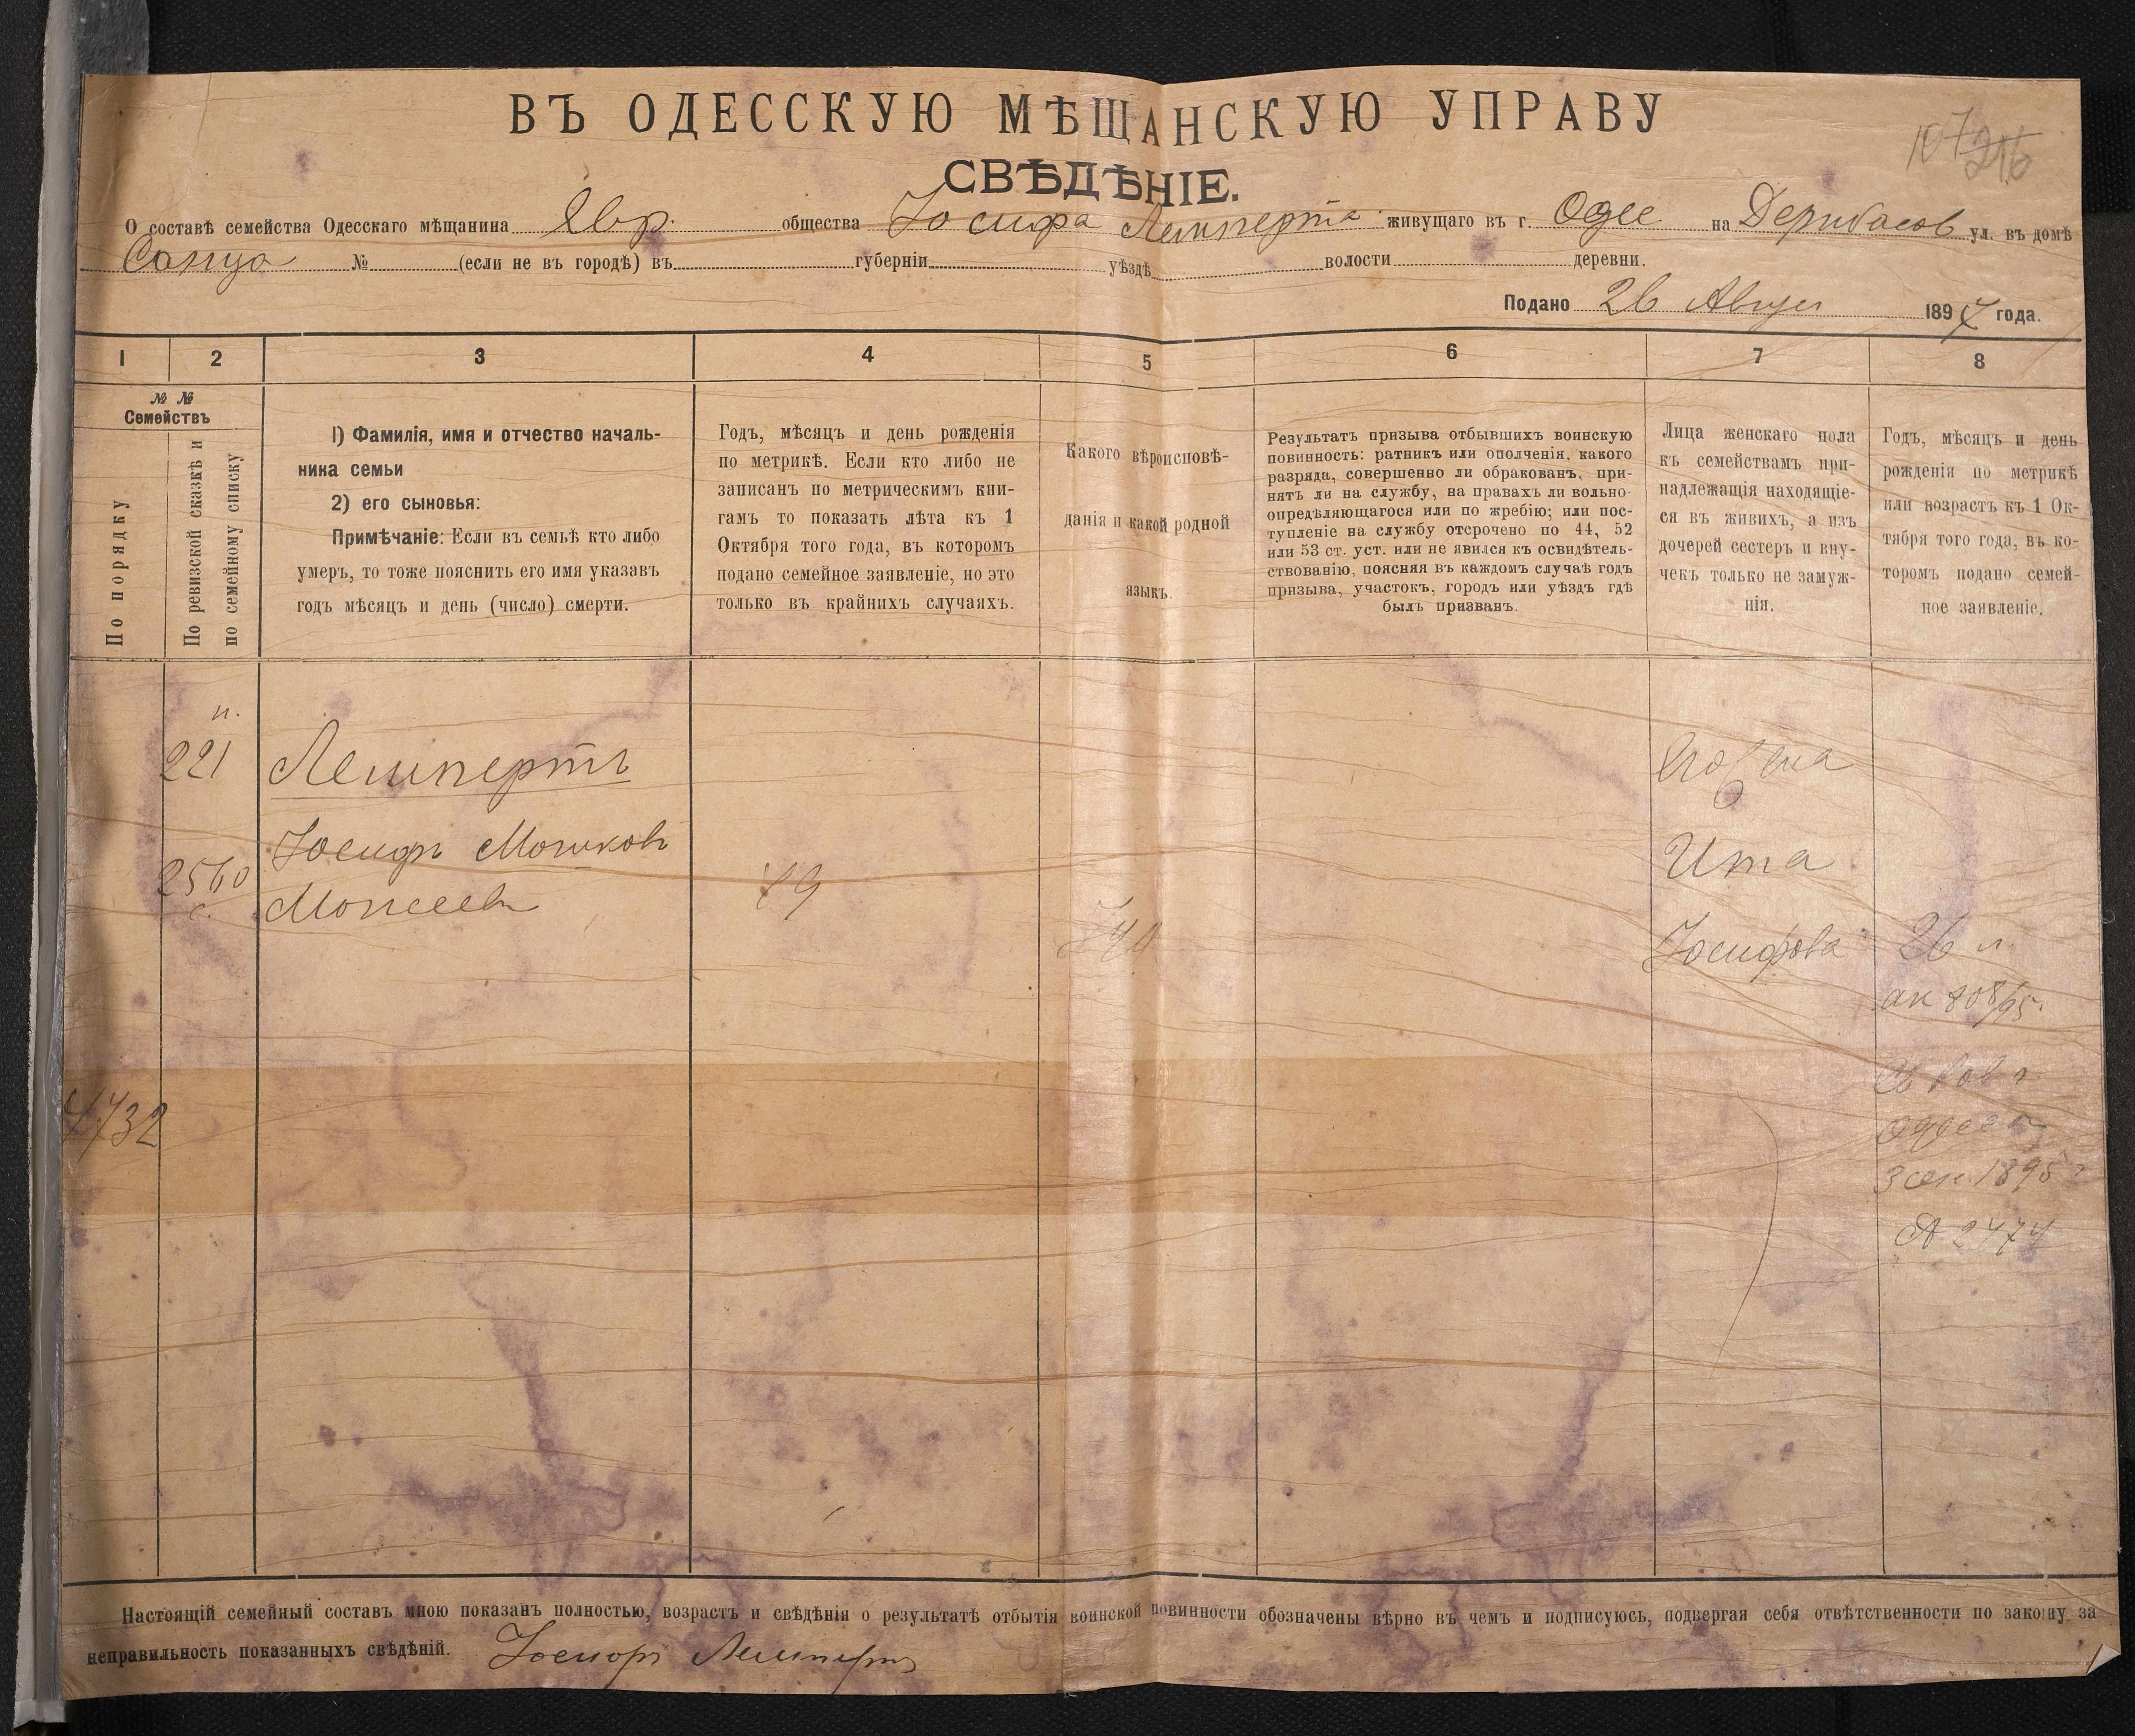 ВЪ ОДЕССКУЮ МѢЩАНСКУЮ УПРАВУ
107 216
СВѢДѢНІЕ.
О составѣ семейства Одесскаго мѣщанина Евр. общества Іосифа Лемперта живущаго въ г. Одес на Дерибасов ул. въ домѣ
№ (если не въ городѣ) въ губерніи уѣздѣ волости деревни.
Подано 26 Авгус 1897 года.
1 2 3 4 5 6 7 8
№ № Семействъ
По порядку
По ревизской сказкѣ и по семейному списку
1) Фамилія, имя и отчество началь-
ника семьи
2) его сыновья:
Примѣчаніе: Если въ семьѣ кто либо
умеръ, то тоже пояснить его имя указавъ
годъ мѣсяцъ и день (число) смерти.
Годъ, мѣсяцъ и день рожденія
по метрикѣ. Если кто либо не
записанъ по метрическимъ кни-
гамъ то показать лѣта къ 1
Октября того года, въ которомъ
подано семейное заявленіе, но это
только въ крайнихъ случаяхъ.
Какого вѣроисповѣ-
данія и какой родной
языкъ.
Результатъ призыва отбывшихъ воинскую
повинность: ратникъ или ополченія, какого
разряда, совершенно ли обракованъ, при-
нятъ ли на службу, на правахъ ли вольно-
опредѣляющагося или по жребію; или пос-
тупленіе на службу отсрочено по 44, 52
или 53 ст. уст. или не явился къ освидѣтель-
ствованію, поясняя въ каждомъ случаѣ годъ
призыва, участокъ, городъ или уѣздъ гдѣ
былъ призванъ.
Лица женскаго пола
къ семействамъ при-
надлежащія находящіе-
ся въ живихъ, а изъ
дочерей сестеръ и вну-
чекъ только не замуж-
нія.
Годъ, мѣсяцъ и день
рожденія по метрикѣ
или возрастъ къ 1 Ок-
тября того года, въ ко-
торомъ подано семей-
ное заявленіе.
н.
221 Лемпертъ Его жена
Іосифъ Мошковъ Ита
2560 Моисеевъ 49
с.
Іосифова 26 л.
ак 808/95.
4732
3 сен. 1895 г
2474
Настоящій семейный составъ мною показанъ полностью, возрастъ и свѣдѣнія о результатѣ отбытія воинской повинности обозначены вѣрно въ чемъ и подписуюсь, подвергая себя отвѣтственности по закону за
неправильность показанныхъ свѣдѣній. Іосифъ Лемпертъ